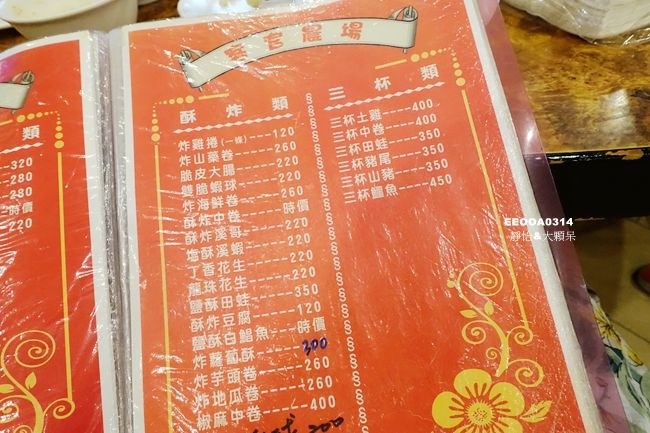 無名農場
類
320
280
280
時價
220
酥炸類
炸雞捲(一條)-----120
炸山藥卷-----260
脆皮大腸-----220
雙脆蝦球-----220
炸海鮮卷-----260
酥炸中卷-----時價
酥炸溪哥-----220
塩酥溪蝦-----220
丁香花生-----220
龍珠花生-----220
鹽酥田蛙-----350
酥炸豆腐-----120
鹽酥白鯧魚---時價
炸蘿蔔酥-----300
炸芋頭卷-----260
炸地瓜卷-----260
椒麻中卷-----400
200
三杯類
三杯土雞-----400
三杯中卷-----400
三杯田蛙-----350
三杯豬尾-----350
三杯山豬-----350
三杯鱷魚-----450
EEOOA0314
靜怡&大顆呆